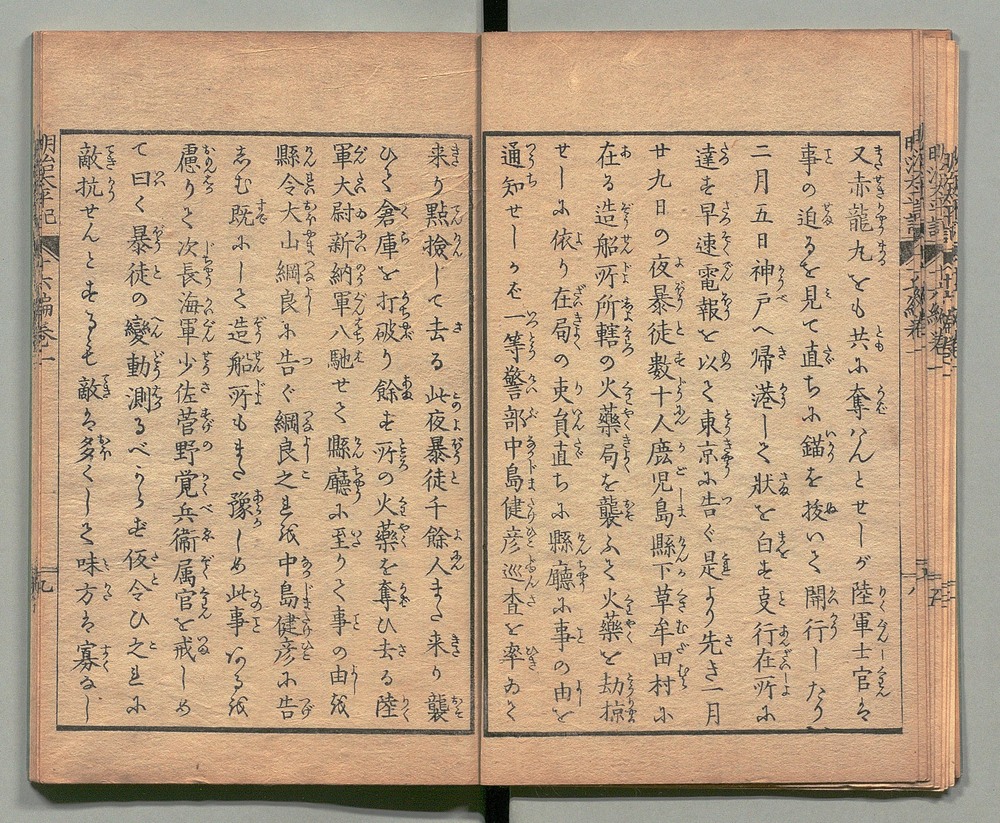 又赤龍丸をも共に奪はんとせしが陸軍士官は
事の迫るを見て直ちに錨を拔いて開行したり
二月五日神戸へ帰港して狀を白す支行在所に
達す早速電報を以て東京に告ぐ是より先き一月
廿九日の夜暴徒数十人鹿児島縣下草牟田村に
在る造船所所轄の火藥局を襲ふて火藥を劫掠
せしに依り在局の吏員直ちに縣廳に事の由を
通知せしかば一等警部中島健彦巡査を率ゐて
来り點撿して去る此夜暴徒千餘人また来り襲
ひて倉庫を打破り餘す所の火藥を奪ひ去る陸
軍大尉新納軍八馳せて縣廳に至りて事の由を
縣令大山綱良に告ぐ綱良之れを中島健彦に告
しむ既にして造船所もまた豫しめ此事あるを
慮りて次長海軍少佐菅野覚兵衞属官を戒しめ
て曰く暴徒の變動測るべからず仮令ひ之れに
敵抗せんとするも敵は多くして味方は寡なし
明治太平記
十六編巻之一
九